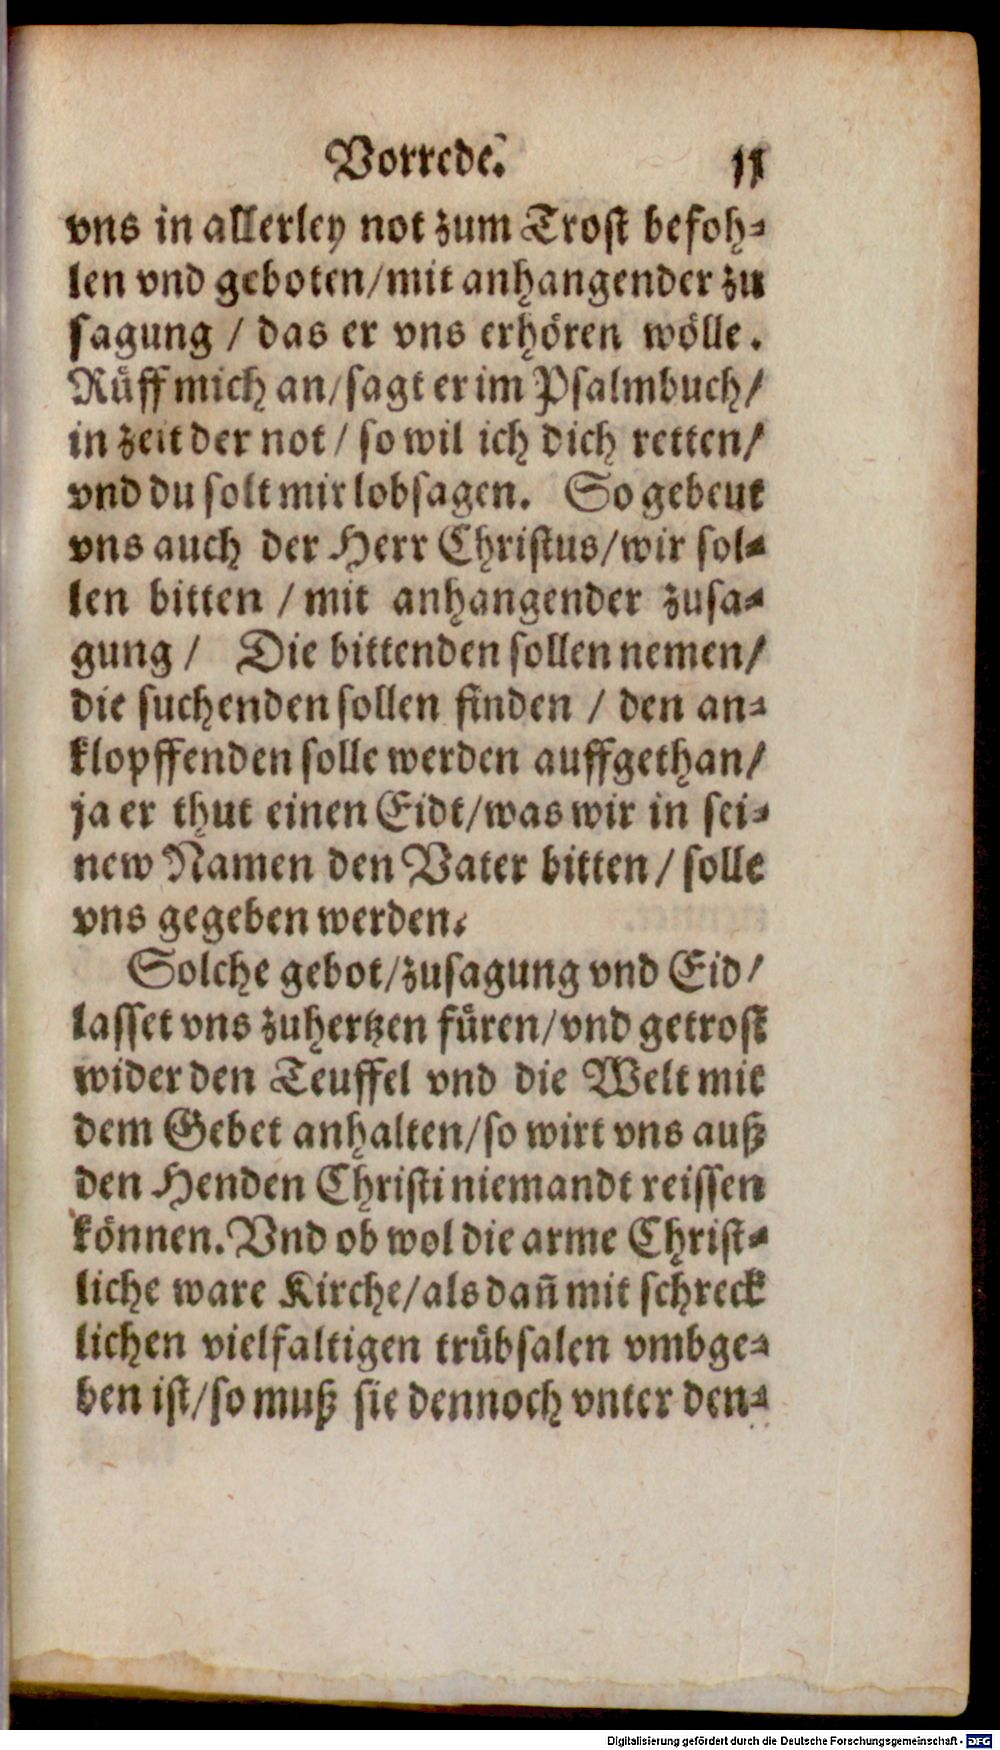 Vorrede. 11
vns in allerley not zum Trost befoh-
len vnd geboten/mit anhangender zu
sagung / das er vns erhören wölle.
Rüff mich an/sagt er im Psalmbuch/
in zeit der not / so wil ich dich retten/
vnd du solt mir lobsagen. So gebeut
vns auch der Herr Christus/wir sol-
len bitten / mit anhangender zusa-
gung / Die bittenden sollen nemen/
die suchenden sollen finden / den an-
klopffenden solle werden auffgethan/
ja er thut einen Eidt/was wir in sei-
new Namen den Vater bitten / solle
vns gegeben werden.
Solche gebot/zusagung vnd Eid/
lasset vns zuhertzen füren/vnd getrost
wider den Teuffel vnd die Welt mit
dem Gebet anhalten/so wirt vns auß
den Henden Christi niemandt reissen
können. Vnd ob wol die arme Christ-
liche ware Kirche/als dañ mit schreck
lichen vielfaltigen trübsalen vmbge-
ben ist/so muß sie dennoch vnter den-
Digitalisierung gefördert durch die Deutsche Forschungsgemeinschaft - DFG